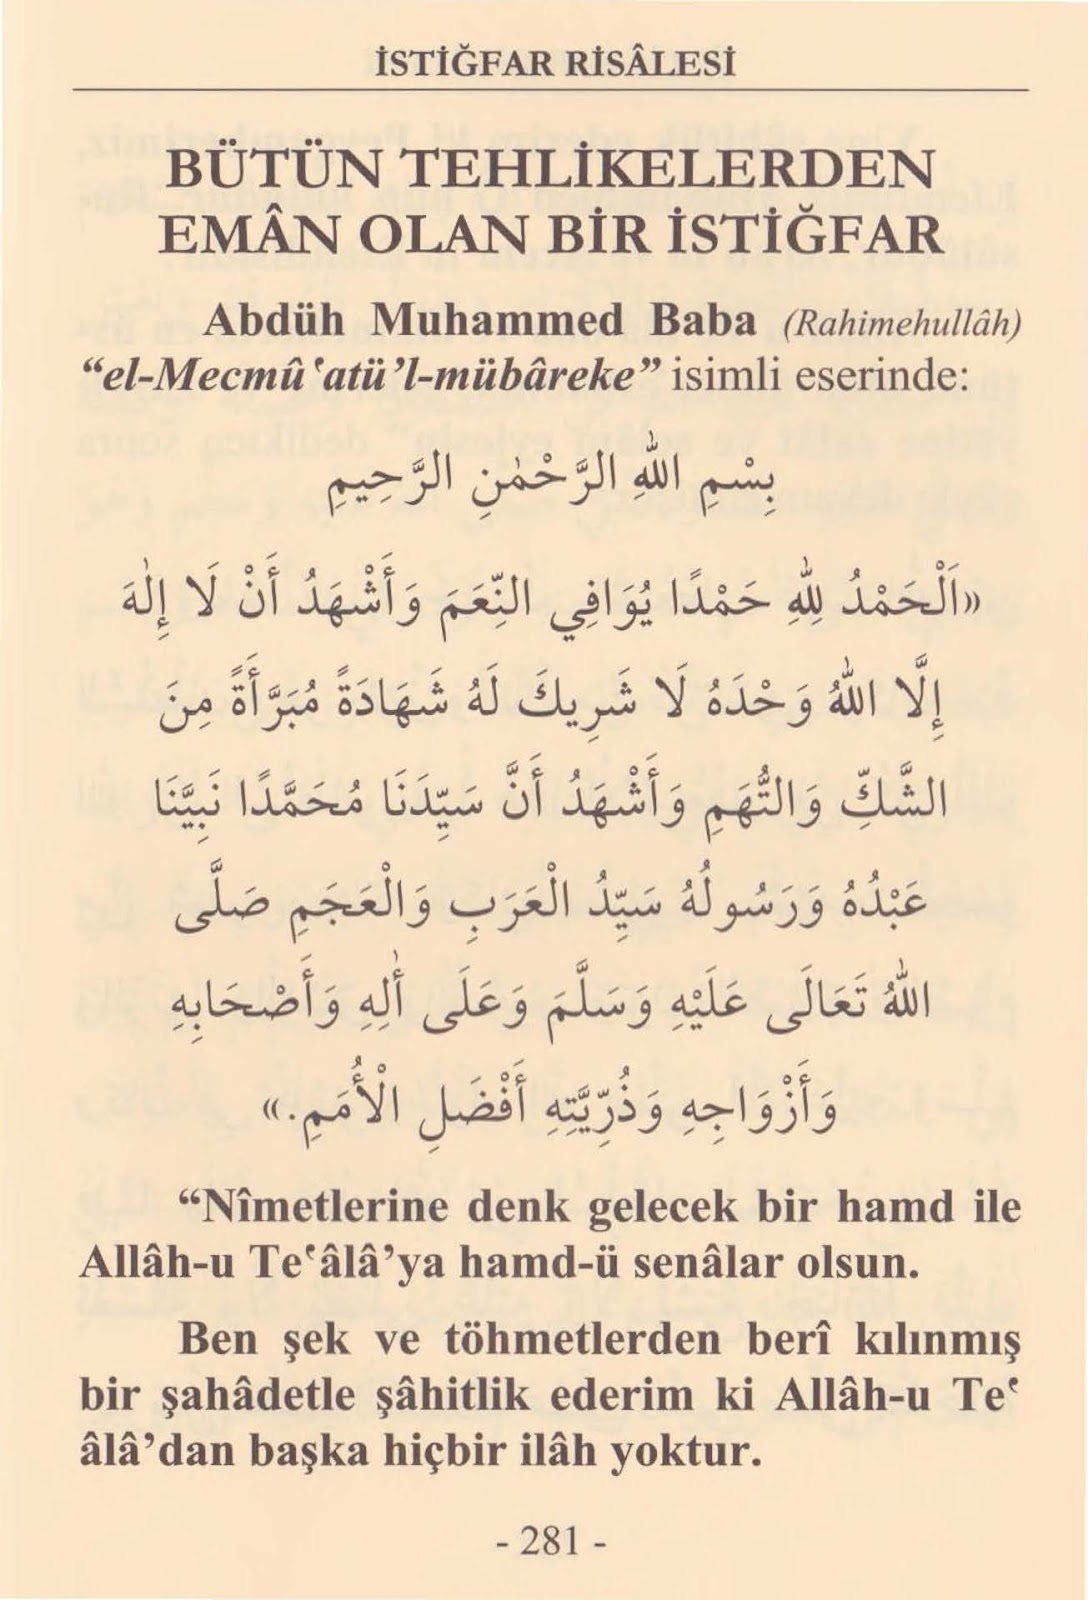 İSTİĞFAR RİSÂLESİ
BÜTÜN TEHLİKELERDEN
EMÂN OLAN BİR İSTİĞFAR
Abdüh Muhammed Baba (Rahimehullâh)
“el-Mecmû‘atü’l-mübâreke” isimli eserinde:
بِسْمِ اللهِ الرَّحْمٰنِ الرَّحِيمِ
«اَلْحَمْدُ لِلهِ حَمْدًا يُوَافِي النِّعَمَ وَأَشْهَدُ أَنْ لَا إِلٰهَ
إِلَّا اللهُ وَحْدَهُ لَا شَرِيكَ لَهُ شَهَادَةً مُبَرَّأَةً مِنَ
الشَّكِّ وَالتُّهَمِ وَأَشْهَدُ أَنَّ سَيِّدَنَا مُحَمَّدًا نَبِيَّنَا
عَبْدُهُ وَرَسُولُهُ سَيِّدُ الْعَرَبِ وَالْعَجَمِ صَلَّى
اللهُ تَعَالَى عَلَيْهِ وَسَلَّمَ وَعَلَى أٰلِهِ وَأَصْحَابِهِ
وَأَزْوَاجِهِ وَذُرِّيَّتِهِ أَفْضَلِ الْأُمَمِ.»
“Nîmetlerine denk gelecek bir hamd ile
Allâh-u Te‘âlâ’ya hamd-ü senâlar olsun.
Ben şek ve töhmetlerden berî kılınmış
bir şahâdetle şâhitlik ederim ki Allâh-u Te‘
âlâ’dan başka hiçbir ilâh yoktur.
- 281 -